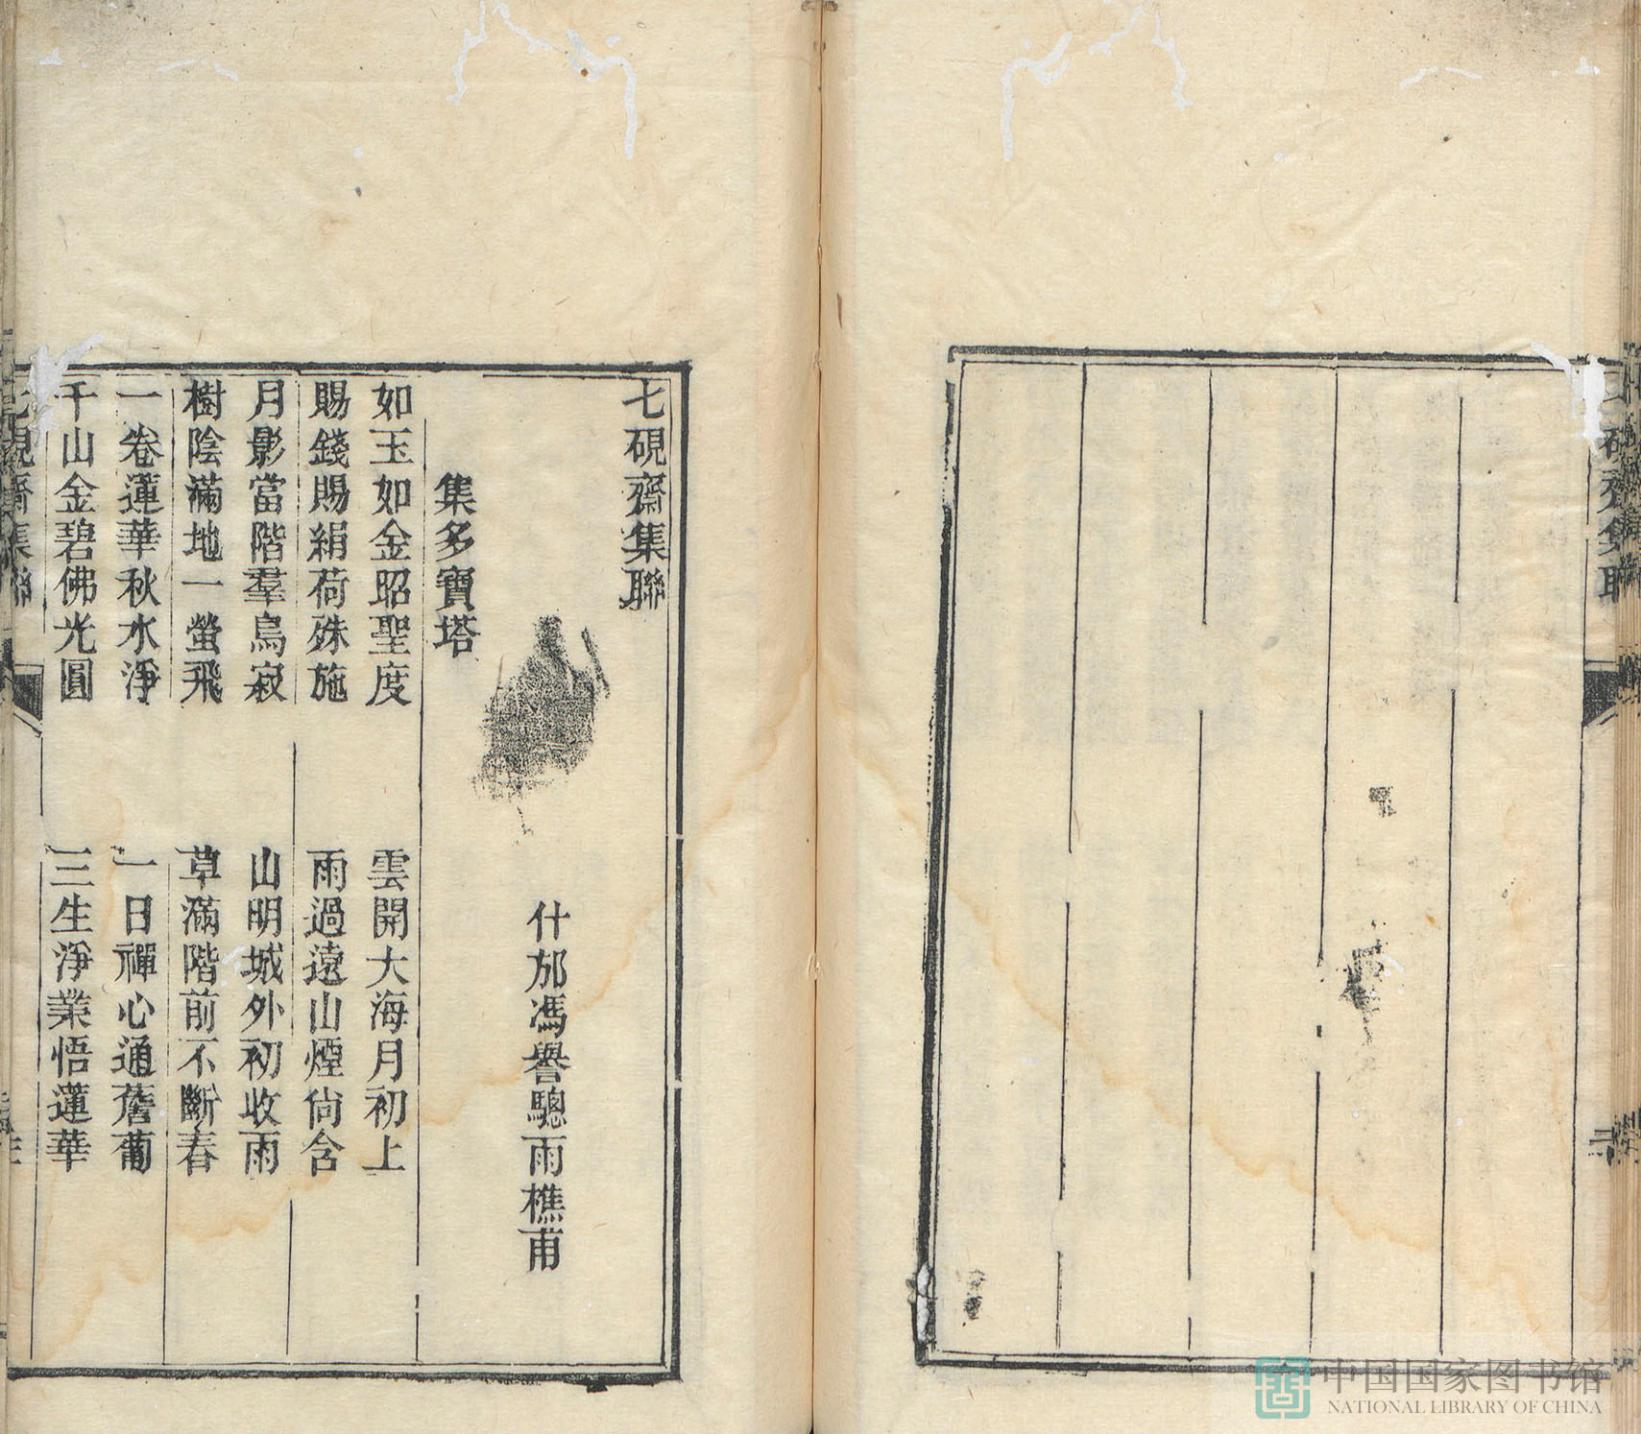 七硯齋集聯
什邡馮譽驄雨樵甫
集多寶塔
如玉如金昭聖度　雲開大海月初上
賜錢賜絹荷殊施　雨過遠山煙尙含
月影當階羣鳥寂　山明城外初收雨
樹陰滿地一螢飛　草滿階前不斷春
一卷蓮華秋水淨　一日禪心通薝蔔
千山金碧佛光圓　三生淨業悟蓮華
七硯齋集聯
中国国家图书馆
NATIONAL LIBRARY OF CHINA